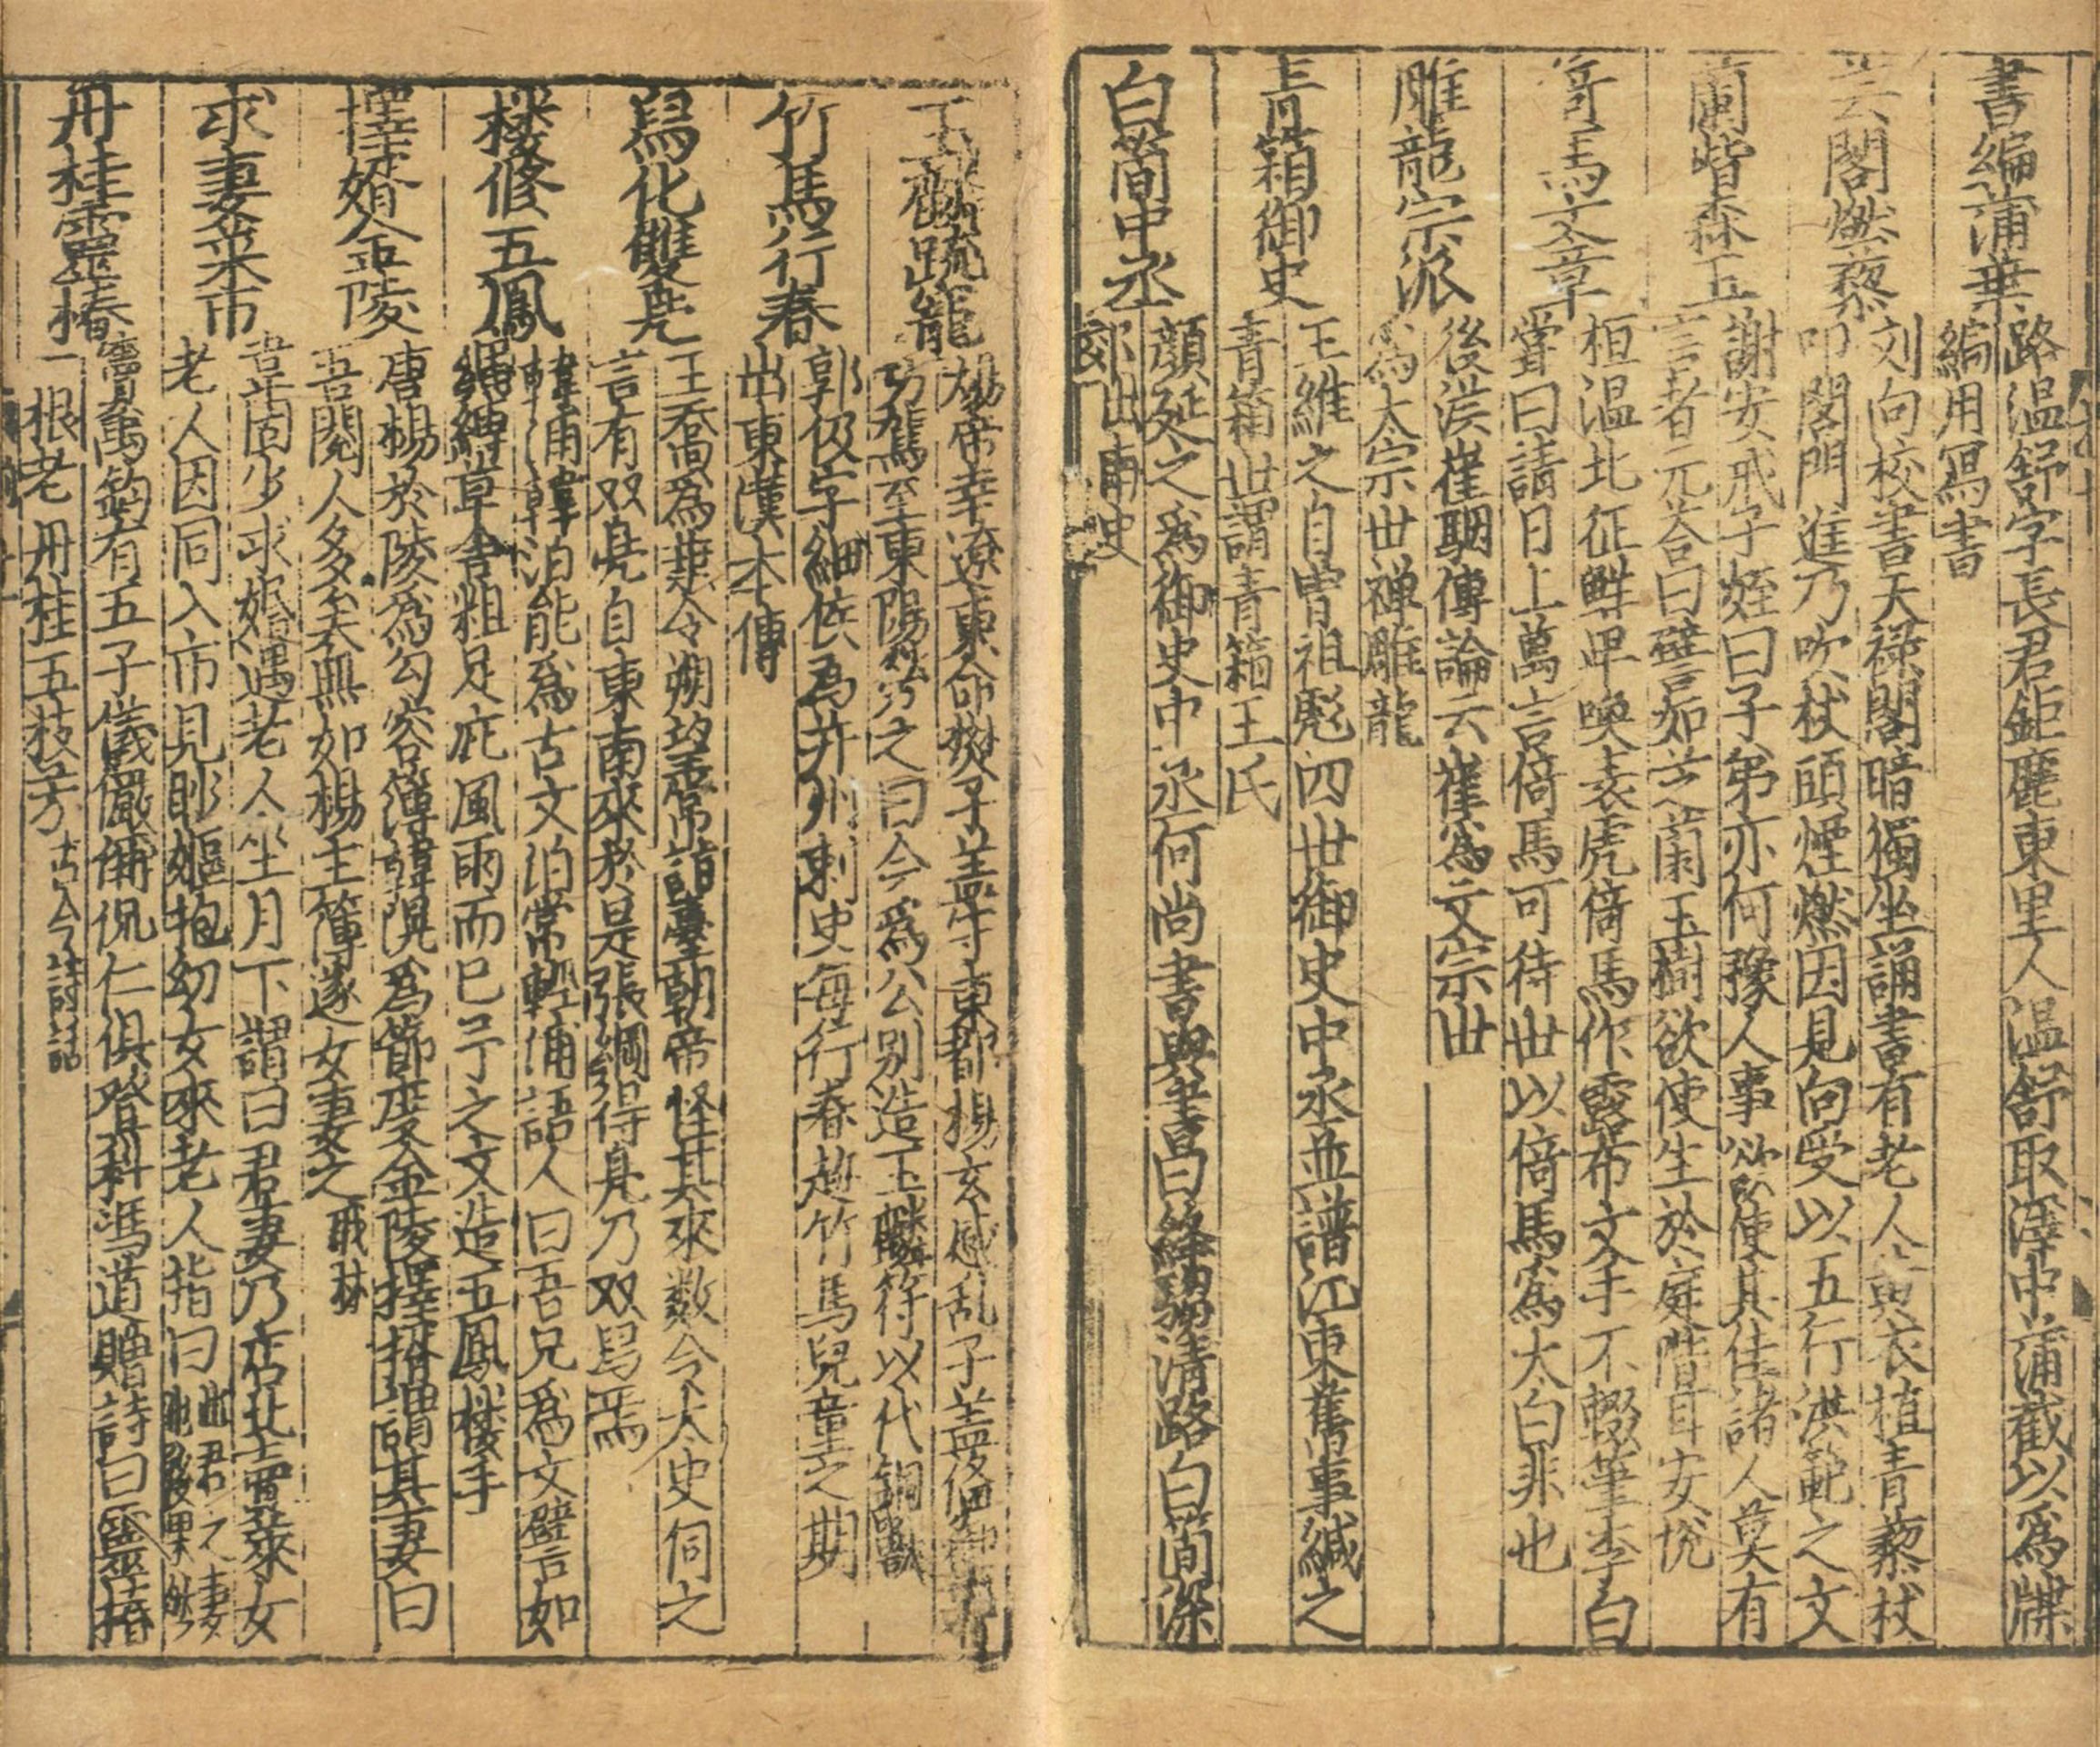 書編蒲葉 路温舒字長君鉅鹿東里人温舒取澤中蒲截以為牒
編用寫書
芸閣燃藜 刘向校書天禄閣暗獨坐誦書有老人黄衣植青藜杖
叩閣門進乃吹杖頭煙燃因見向受以五行洪範之文
蘭堦森玉 謝安戒子姪曰子弟亦何豫人事欲使其佳諸人莫有
言者元荅曰譬如芝蘭玉樹欲使生於庭階耳安恱
倚馬文章 桓温北征鮮卑喚袁虎倚馬作露布文手不輟筆李白
嘗曰請日上萬言倚馬可待世以倚馬為太白非也
雕龍宗派 後漢崔駰傳論云崔為文宗世
為太宗世禅雕龍
青箱御史 王維之自曾祖彪四世御史中丞並譜江東舊事緘之
青箱世謂青箱王氏
白简中丞 顔延之為御史中丞何尚書與書曰絳騶清路白简深
出南史
玉麟 煬帝幸遼東命樊子盖守東都楊玄感乱子盖
功駕至東陽劳之曰今為公别造玉麟符以代銅獸
竹馬行春 郭伋字細侯為并州刺史每行春趂竹馬兒童之期
出東漢本傳
舄化雙凫 王喬為葉令朔望常詣臺朝帝怪其來数令太史伺之
言有双凫自東南來於是張綱得凫乃双舄焉
楼修五鳳 韓浦韓洎能為古文洎常輕浦語人曰吾兄為文譬如
繩縛草舍粗足庇風雨而已予之文造五鳳楼手
擇婿金陵 唐楊於陵為勾容簿韓滉為節度金陵擇壻謂其妻曰
吾閱人多矣無如楊主簿遂女妻之
求妻菜市 韋固少求婚遇老人坐月下謂曰君妻乃店北賣菜女
老人因同入市見眇嫗抱幼女來老人指曰此君之妻 也後果然
丹桂靈椿 竇禹鈞有五子儀儼偁侃僖俱登科馮道贈詩曰靈椿
一根老丹桂五枝芳 古今詩話